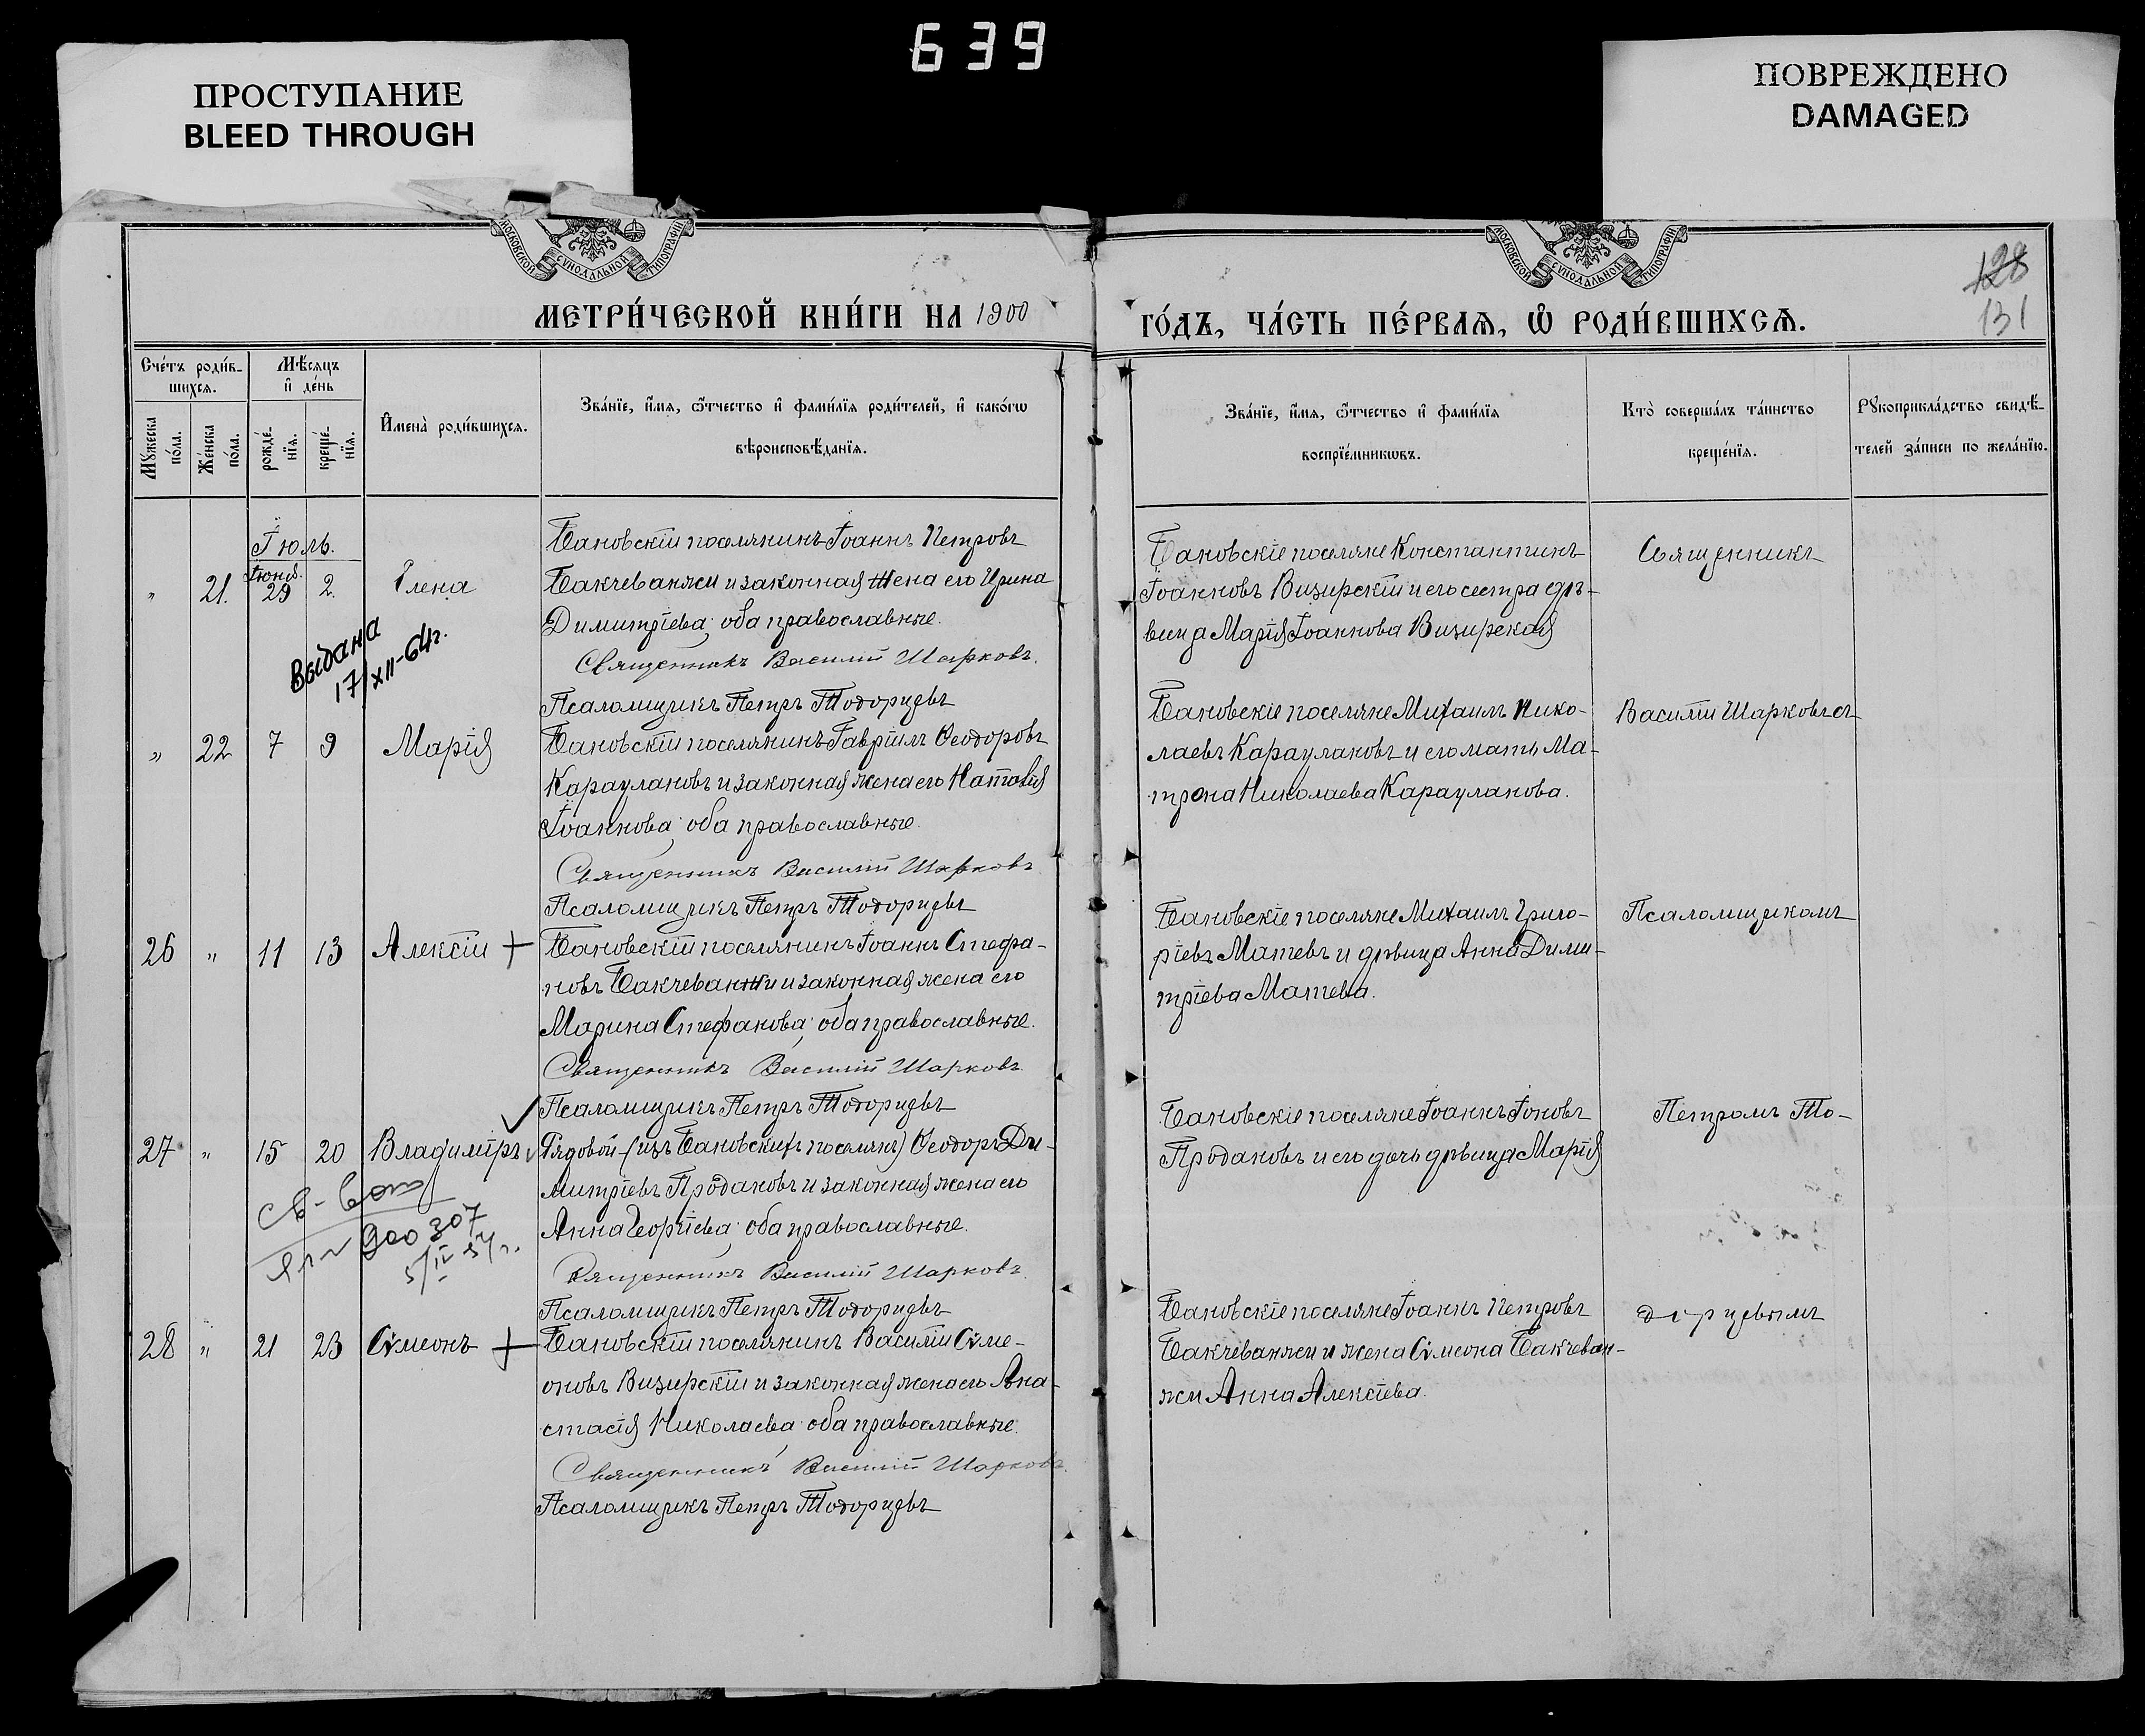 639
ПРОСТУПАНИЕ
BLEED THROUGH
ПОВРЕЖДЕНО
DAMAGED
МОСКОВСКОЙ СУНОДАЛЬНОЙ ТИПОГРАФІИ
МОСКОВСКОЙ СУНОДАЛЬНОЙ ТИПОГРАФІИ
128
131
МЕТРИ́ЧЕСКОЙ КНИ́ГИ НА 1900
ГО́ДЪ, ЧА́СТЬ ПЕ́РВАѦ, Ѿ РОДИ́ВШИХСѦ.
Сче́тъ роди́в-
шихсѧ.
Мꙋ́жеска по́ла.
Же́нска по́ла.
Мѣ́сѧцъ
и҆ де́нь
рожде́-
нїѧ.
креще́-
нїѧ.
И҆мена̀ роди́вшихсѧ.
Зва́нїе, и҆́мѧ, ѻ҆́тчество и҆ фами́лїѧ роди́телей, и҆ како́гѡ
вѣроисповѣ́данїѧ.
Зва́нїе, и҆́мѧ, ѻ҆́тчество и҆ фами́лїѧ
воспрїе́мникѡвъ.
Кто̀ соверша́лъ та́инство
креще́нїѧ.
Рꙋкоприкла́дство свидѣ́-
телей за́писи по жела́нїю.
Іюль.
Іюня
„ 21. 29 2. Елена
Бановскій поселянинъ Іоаннъ Петровъ
Бакчеванжи и законная жена его Ирина
Димитріева; оба православные.
Священникъ Василій Шарковъ.
Псаломщикъ Петръ Тодорицевъ
Бановскіе поселяне Константинъ
Іоанновъ Визирскій и его сестра дѣ-
вица Марія Іоаннова Визирская
Священникъ
Выдана
17/XII-64г.
„ 22 7 9 Марія
Бановскій поселянинъ Гавріилъ Ѳеодоровъ
Караулановъ и законная жена его Наталія
Іоаннова; оба православные.
Священникъ Василій Шарковъ
Псаломщикъ Петръ Тодорицевъ
Бановскіе поселяне Михаилъ Нико-
лаевъ Караулановъ и его мать Ма-
трона Николаева Карауланова.
Василій Шарковъ съ
26 „ 11 13 Алексій +
Бановскій поселянинъ Іоаннъ Стефа-
новъ Бакчеванжи и законная жена его
Марина Стефанова; оба православные.
Священникъ Василій Шарковъ
Псаломщикъ Петръ Тодорицевъ
Бановскіе поселяне Михаилъ Григо-
ріевъ Матевъ и дѣвица Анна Дими-
тріева Матева.
Псаломщикомъ
27 „ 15 20 Владиміръ
Рядовой (изъ Бановскихъ поселянъ) Ѳеодоръ Ди-
митріевъ Продановъ и законная жена его
Анна Георгіева; оба православные.
Священникъ Василій Шарковъ.
Псаломщикъ Петръ Тодорицевъ
Бановскіе поселяне Іоаннъ Іоновъ
Продановъ и его дочь дѣвица Марія
Петромъ То-
св-во
900307
5/IV
28 „ 21 23 Сѵмеонъ +
Бановскій поселянинъ Василій Сѵме-
оновъ Визирскій и законная жена его Ана-
стасія Николаева; оба православные.
Священникъ Василій Шарковъ.
Псаломщикъ Петръ Тодорицевъ
Бановскіе поселяне Іоаннъ Петровъ
Бакчеванжи и жена Сѵмеона Бакчеван-
жи Анна Алексіева.
дорицевымъ